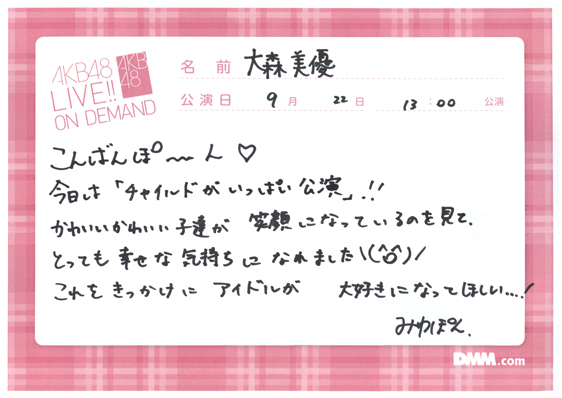 AKB48
LIVE!!
ON DEMAND
AKB
48
名前 大森美優
公演日 9月 22日 13:00 公演
こんばんぽ〜ん♡
今日は「チャイルドがいっぱい公演」!!
かわいいかわいい子達が 笑顔になっているのを見て、
とっても幸せな気持ちになれました\(^o^)/
これをきっかけに アイドルが 大好きになってほしい...!
みゆぽん。
DMM.com